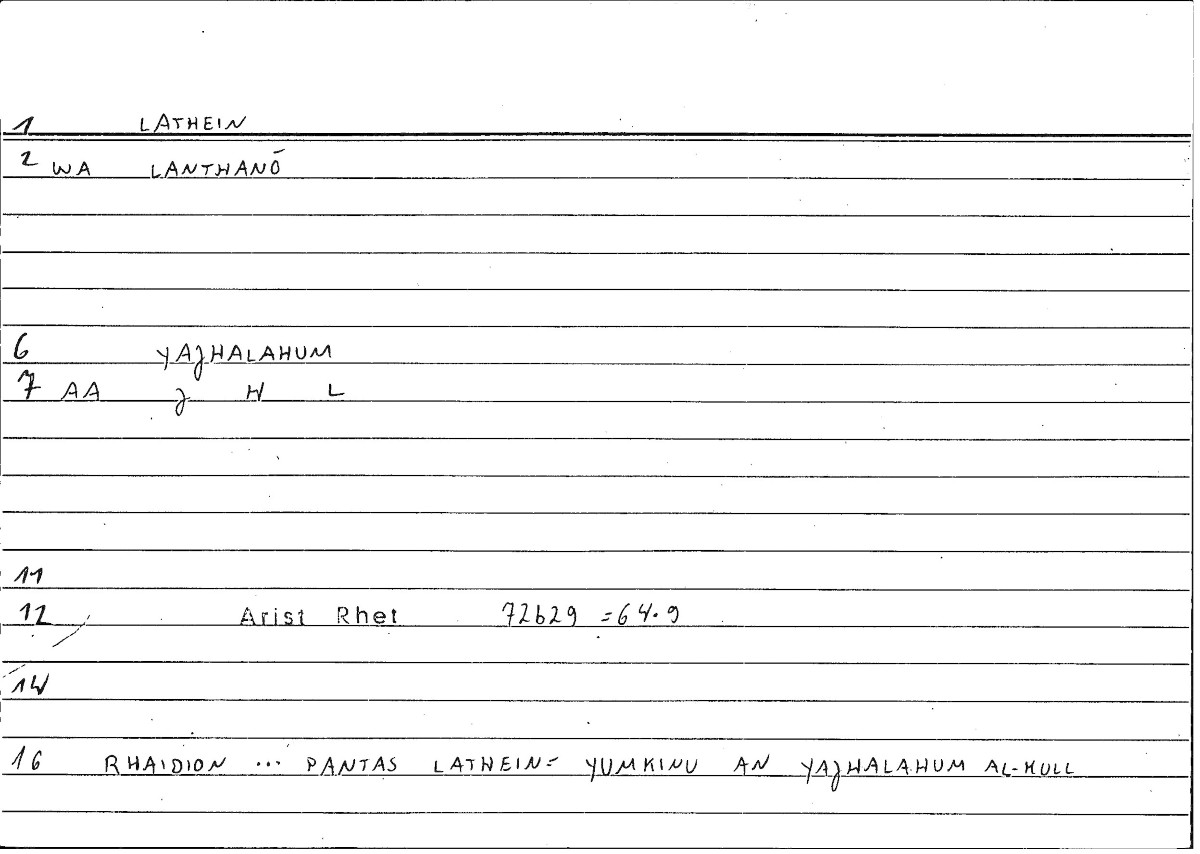 1 LATHEIN
2 WA LANTHANŌ
6 YAJHALAHUM
7 AA J H L
11
12 Arist Rhet 72b29 =64.9
14
16 RHAIDION ... PANTAS LATHEIN= YUMKINU AN YAJHALAHUM AL-KULL